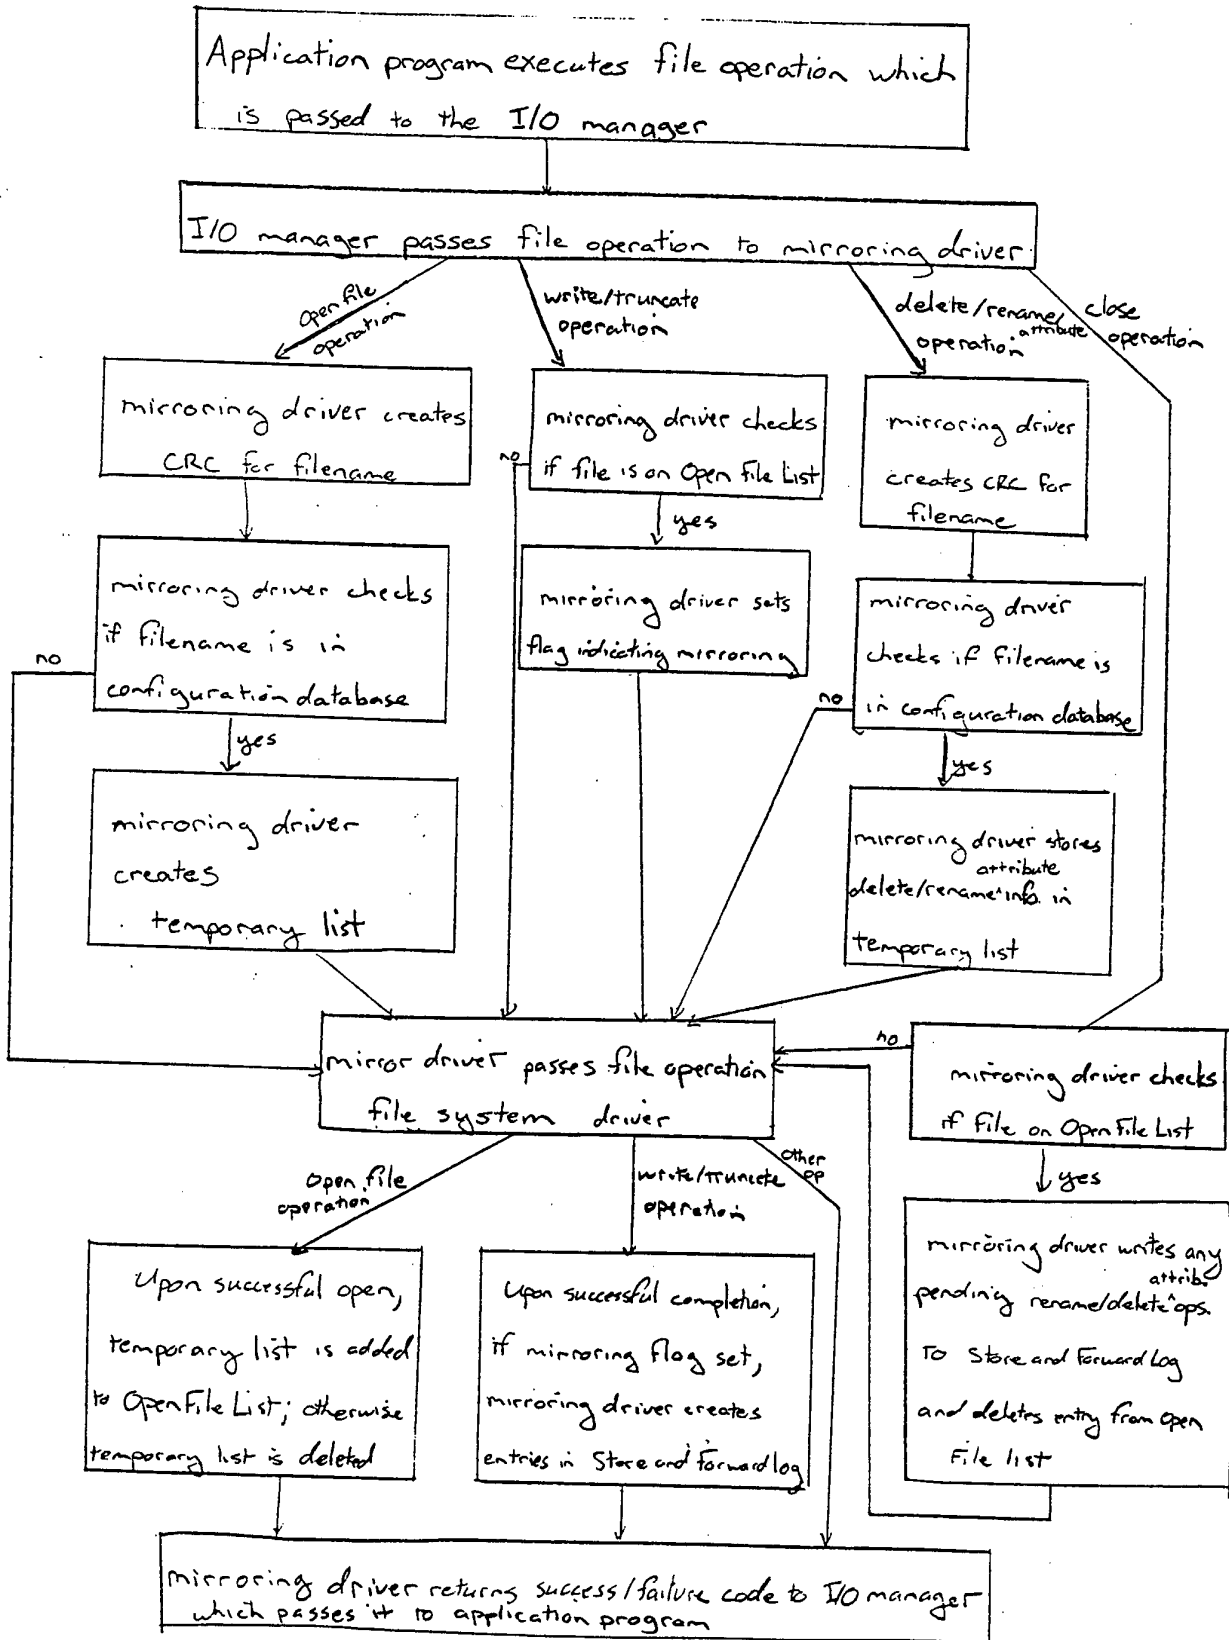 Application program executes file operation which
is passed to the I/O manager
I/O manager passes file operation to mirroring driver
Open file
operation
write/truncate
operation
delete/rename/
attribute
operation
close
operation
mirroring driver creates
CRC for filename
mirroring driver checks
if file is on Open File List
no
yes
mirroring driver
creates CRC for
filename
mirroring driver checks
if filename is in
configuration database
no
yes
mirroring driver sets
flag indicating mirroring
mirroring driver
checks if filename is
in configuration database
no
yes
mirroring driver
creates
temporary list
mirroring driver stores
attribute
delete/rename^info. in
temporary list
mirror driver passes file operation
file system driver
no
mirroring driver checks
if file on Open File List
yes
Open file
operation
write/truncate
operation
Other
op
Upon successful open,
temporary list is added
to Open File List; otherwise
temporary list is deleted
Upon successful completion,
if mirroring flag set,
mirroring driver creates
entries in Store and Forward log
mirroring driver writes any
attrib.
pending rename/delete^ops.
To Store and Forward Log
and deletes entry from Open
File list
mirroring driver returns success/failure code to I/O manager
which passes it to application program